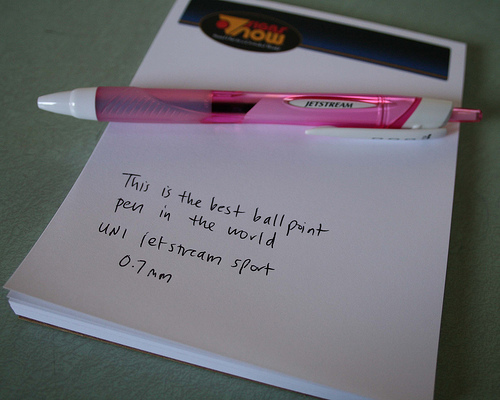 now
JETSTREAM
This is the best ballpoint
pen in the world
UNI Jetstream sport
0.7mm